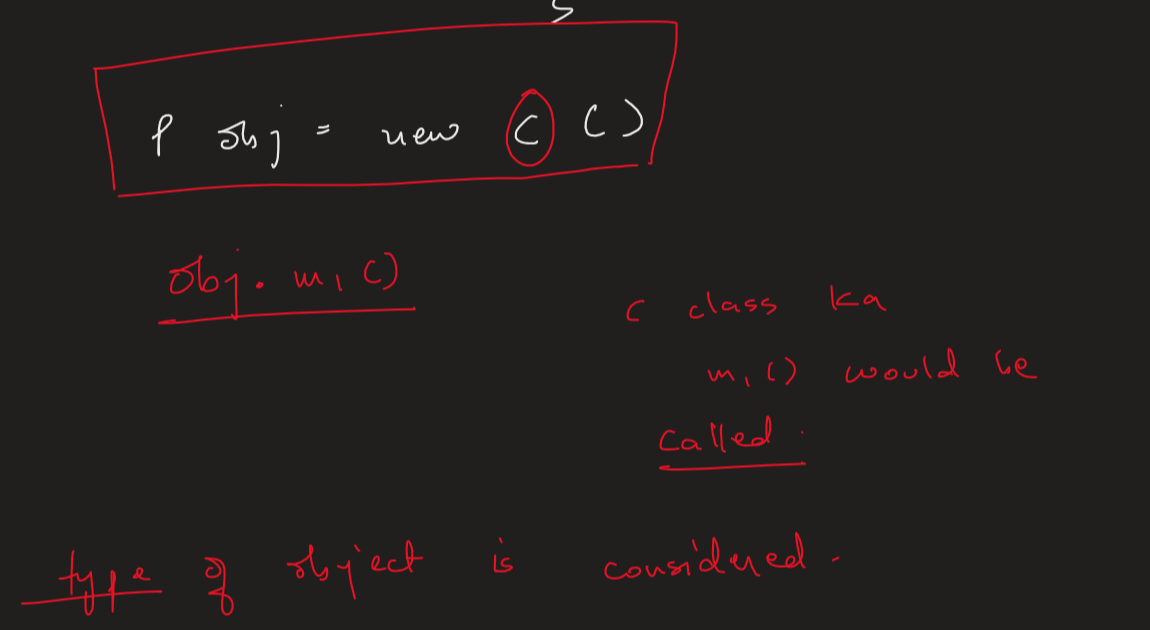 P obj = new C ()
obj. m1 ()
C class ka
m1 () would be
called.
type of object is considered.